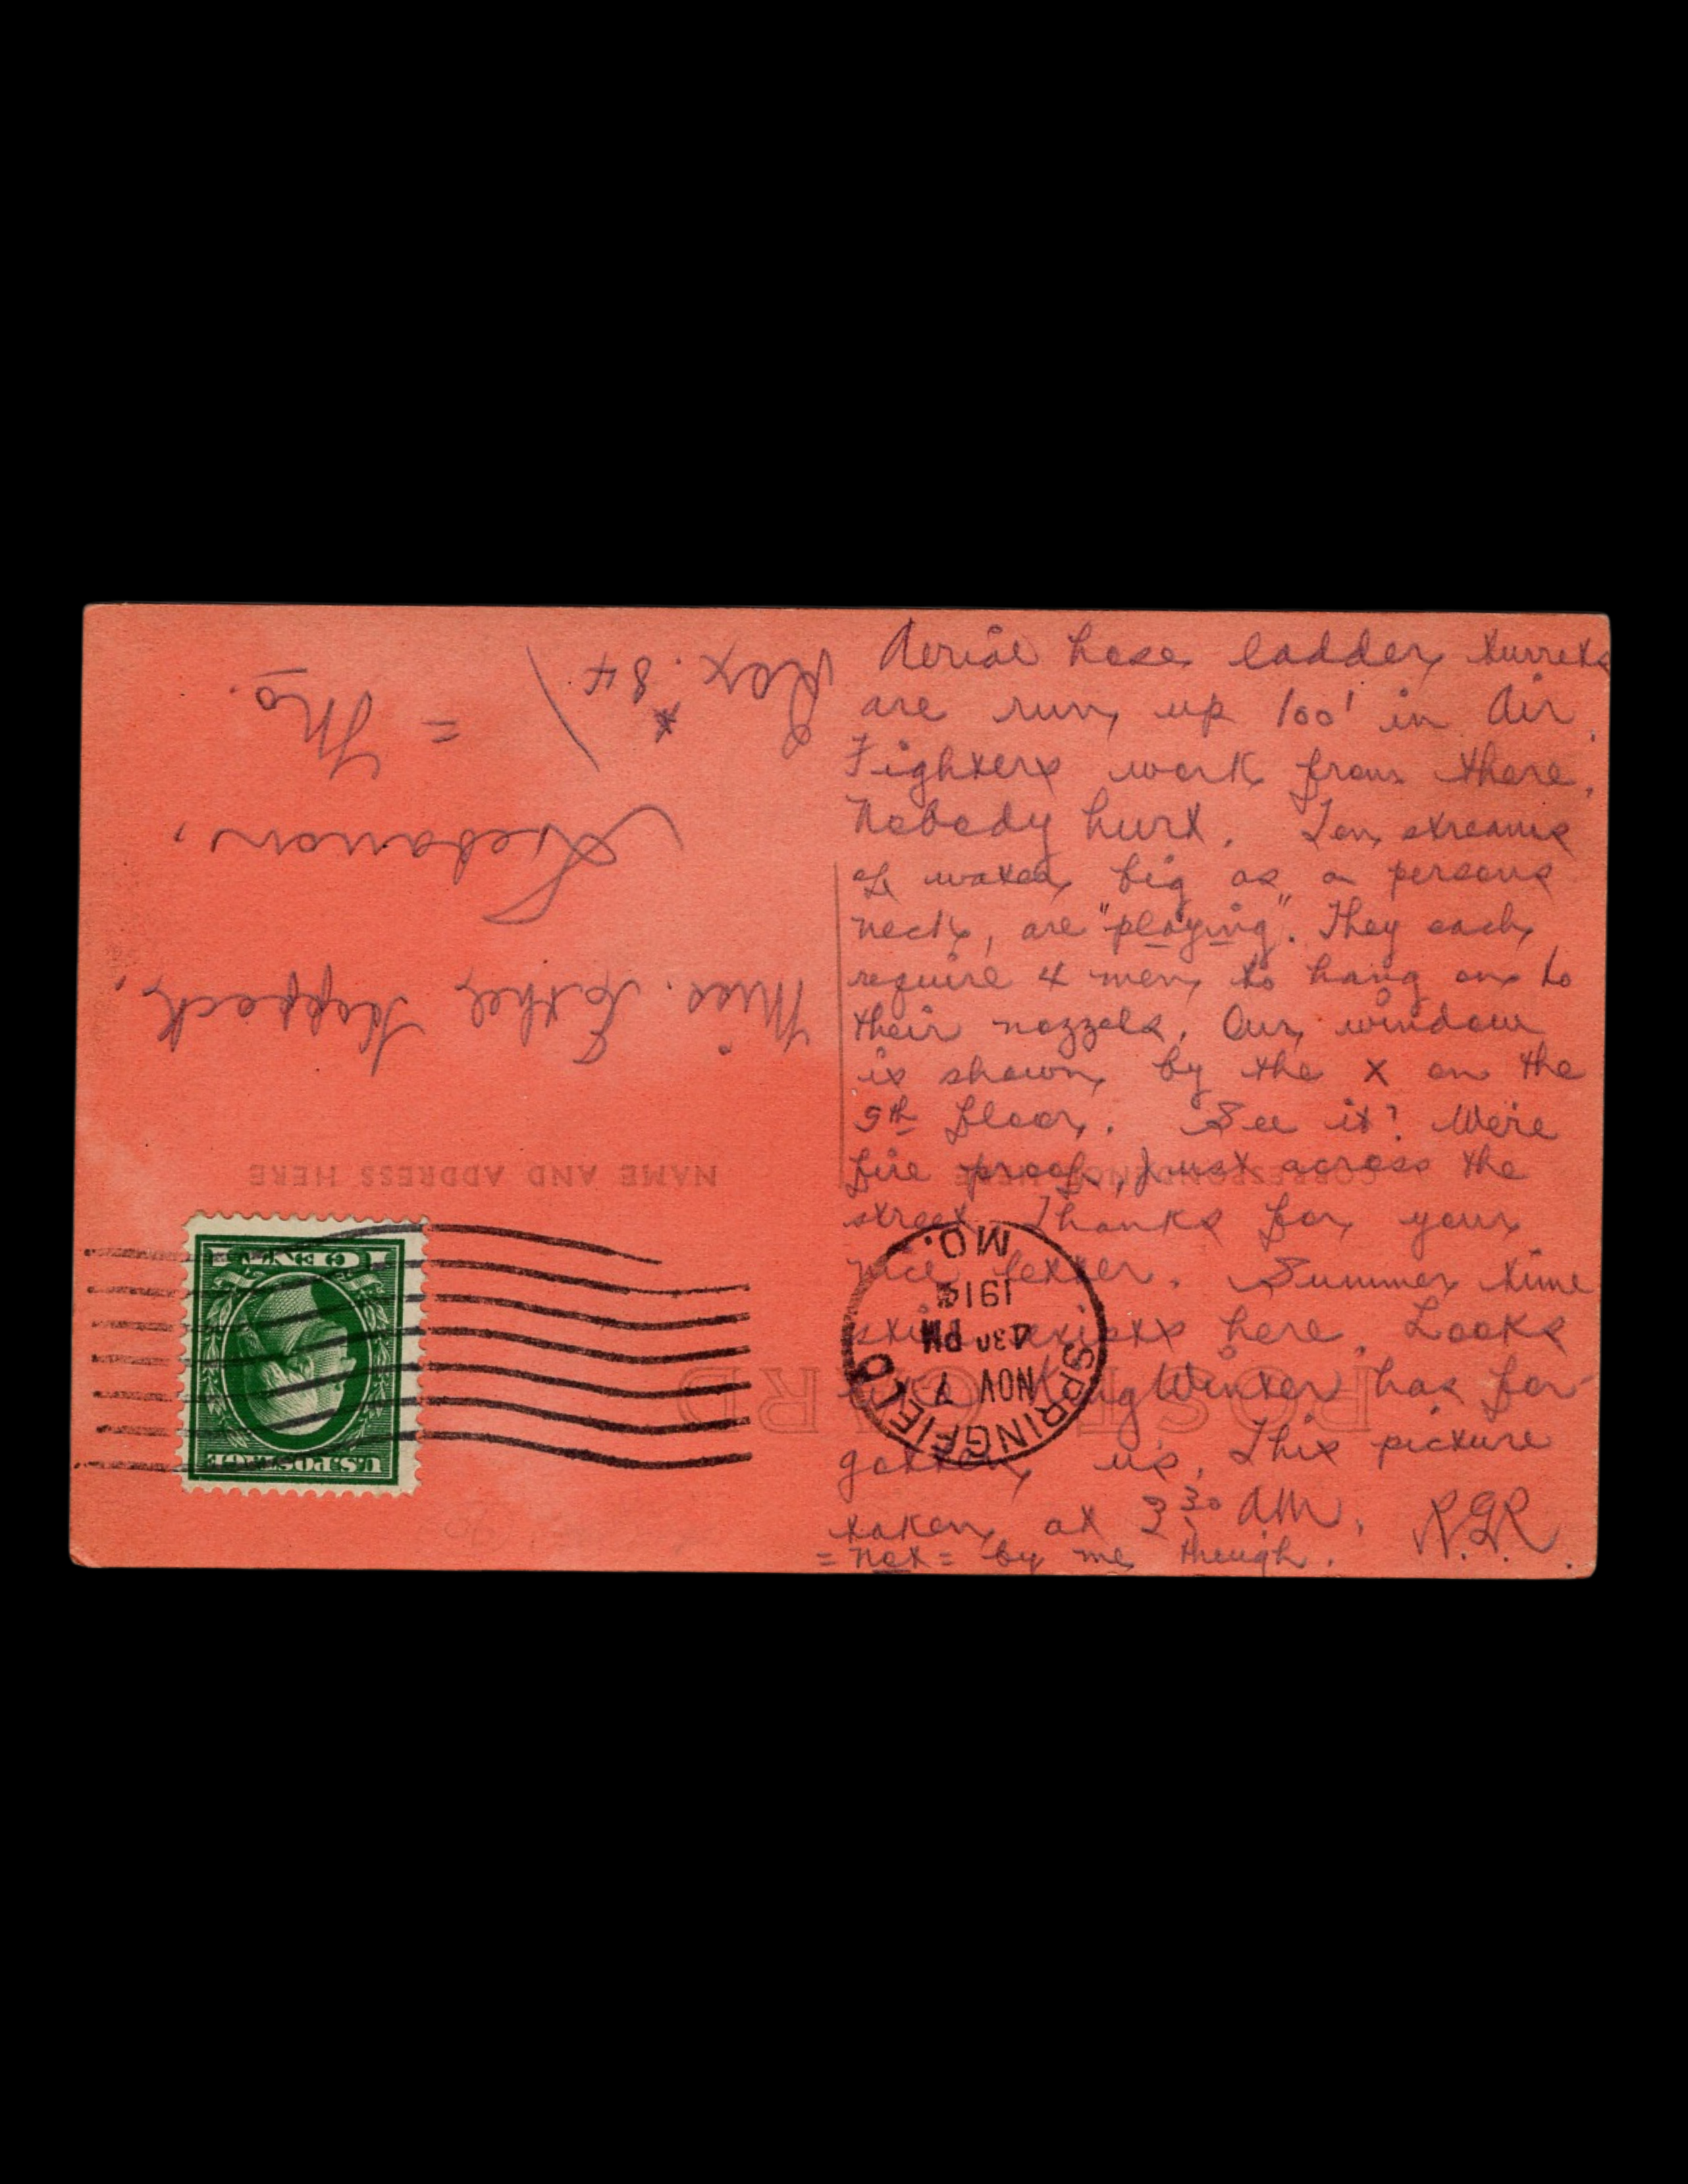 Aerial hose ladder turrets
are run up 100' in air.
Fighters work from there.
Nobody hurt. Ten streams
of water big as a persons
neck, are "playing". They each
require 4 men to hang on to
their nozzels. Our window
is shown by the x on the
5th floor. See it? We're
fire proof, just across the
street. Thanks for your
nice letter. Summer time
still exists here. Looks
like King Winter has for-
gotten us. This picture
taken at 3 30 AM. R.G.R.
= not = by me though.
POST CARD
CORRESPONDENCE HERE
NAME AND ADDRESS HERE
SPRINGFIELD
NOV 7
430 PM
1914
MO.
U.S. POSTAGE
1 CENT 1
Miss. Esther
Lebanon,
= Mo.
Box. * 84